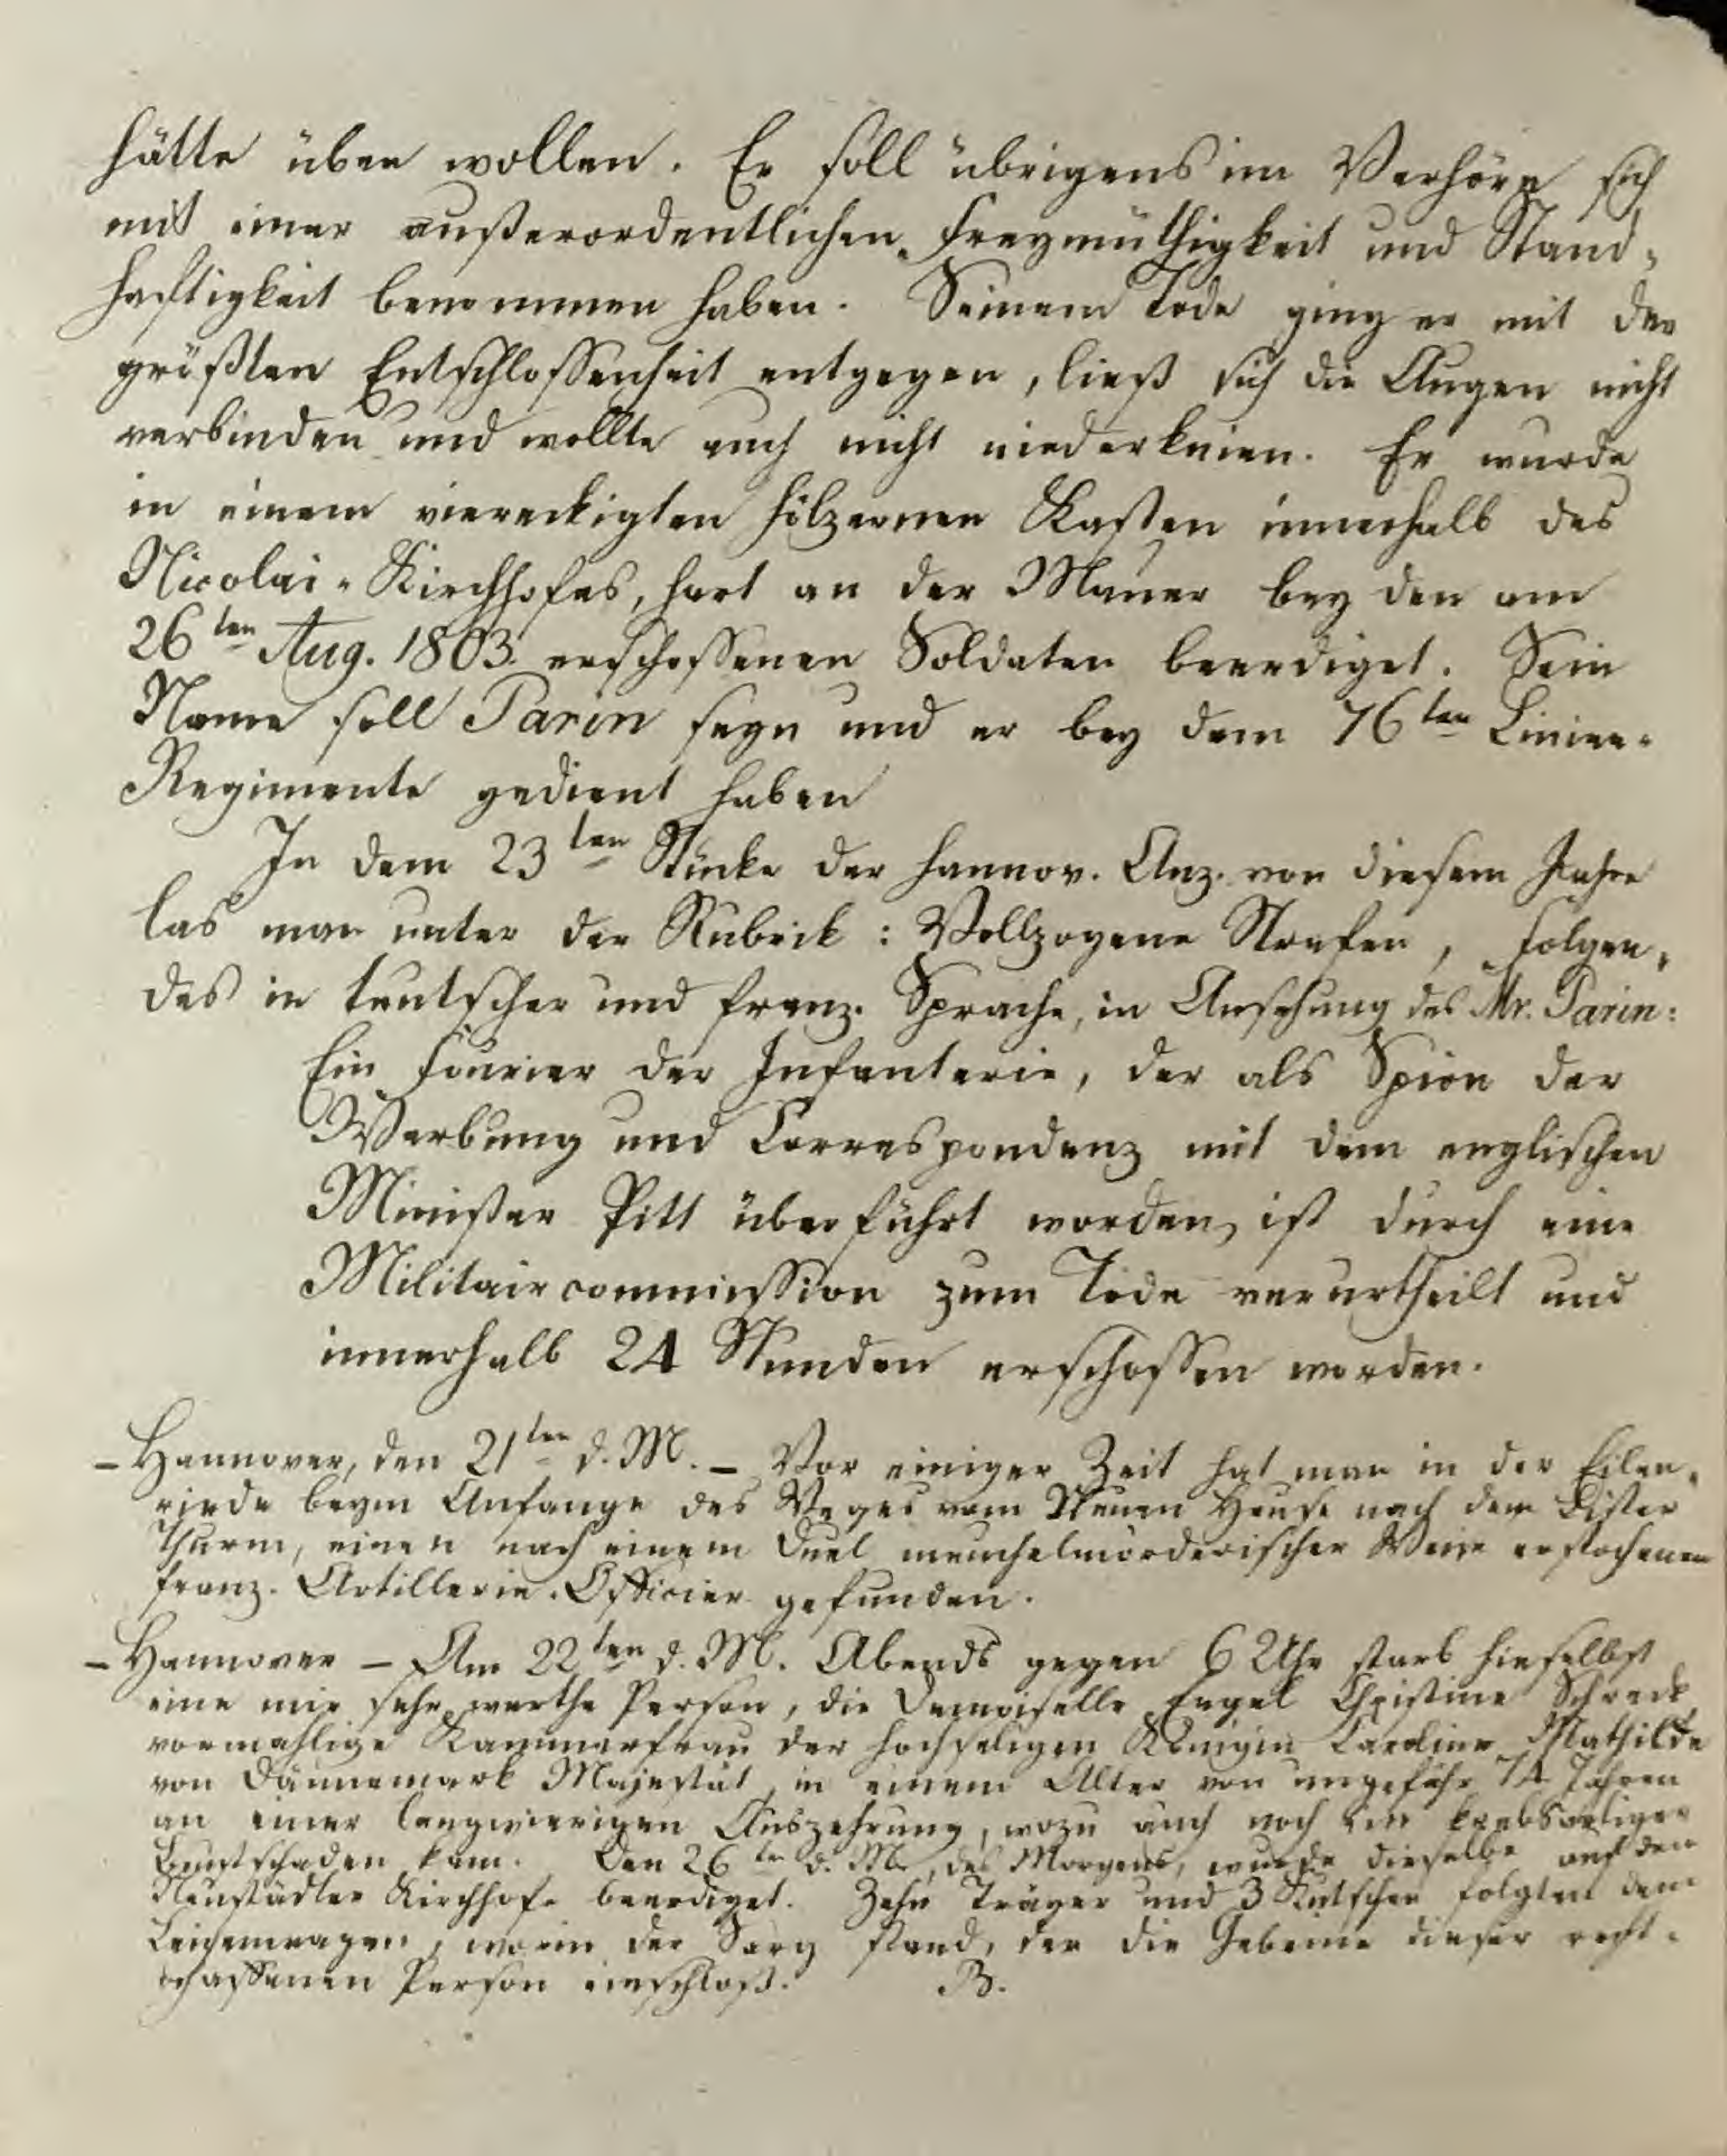 hätte üben wollen. Er soll übrigens im Verhöre sich
mit einer außerordentlichen Freymüthigkeit und Stand-
haftigkeit benommen haben. Seinem Tode ging er mit der
größten Entschlossenheit entgegen, ließ sich die Augen nicht
verbinden und wollte auch nicht niederknien. Er wurde
in einem viereckigten hölzernen Kasten innerhalb des
Nicolai-Kirchhofes, hart an der Mauer bey den am
26ten Aug. 1803 erschossenen Soldaten beerdiget. Sein
Name soll Parin seyn und er bey dem 76ten Linien-
Regimente gedient haben
In dem 23ten Stücke der Hannov. Anz. von diesem Jahre
las man unter der Rubrik: Vollzogene Strafen, folgen-
des in teutscher und franz. Sprache, in Ansehung des Mr. Parin:
Ein Fourier der Infanterie, der als Spion der
Werbung und Correspondenz mit dem englischen
Minister Pitt überführt worden, ist durch eine
Militaircommission zum Tode verurtheilt und
innerhalb 24 Stunden erschossen worden.
– Hannover, den 21ten d. M. – Vor einiger Zeit hat man in der Eilen-
riede beym Anfange des Weges vom Neuen Hause nach dem
Thurm, einen nach einem Duel meuchelmörderischer Weise erstochenen
franz. Artillerie-Officier gefunden.
– Hannover – Am 22ten d. M. Abends gegen 6 Uhr starb hieselbst
eine mir sehr werthe Person, die Demoiselle Engel Christine Schreck,
vormahlige Kammerfrau der hochseligen Königin Caroline Mathilde
von Dännemark Majestät, in einem Alter von ungefähr 74 Jahren
an einer langwierigen Auszehrung, wozu auch noch ein krebsartiger
Brustschaden kam. Den 26ten d. M., des Morgens, wurde dieselbe auf den
Neustädter Kirchhof beerdiget. Zehn Träger und 3 Kutschen folgten dem
Leichenwagen, worin der Sarg stand, der die Gebeine dieser recht-
schaffenen Person einschloß. B.